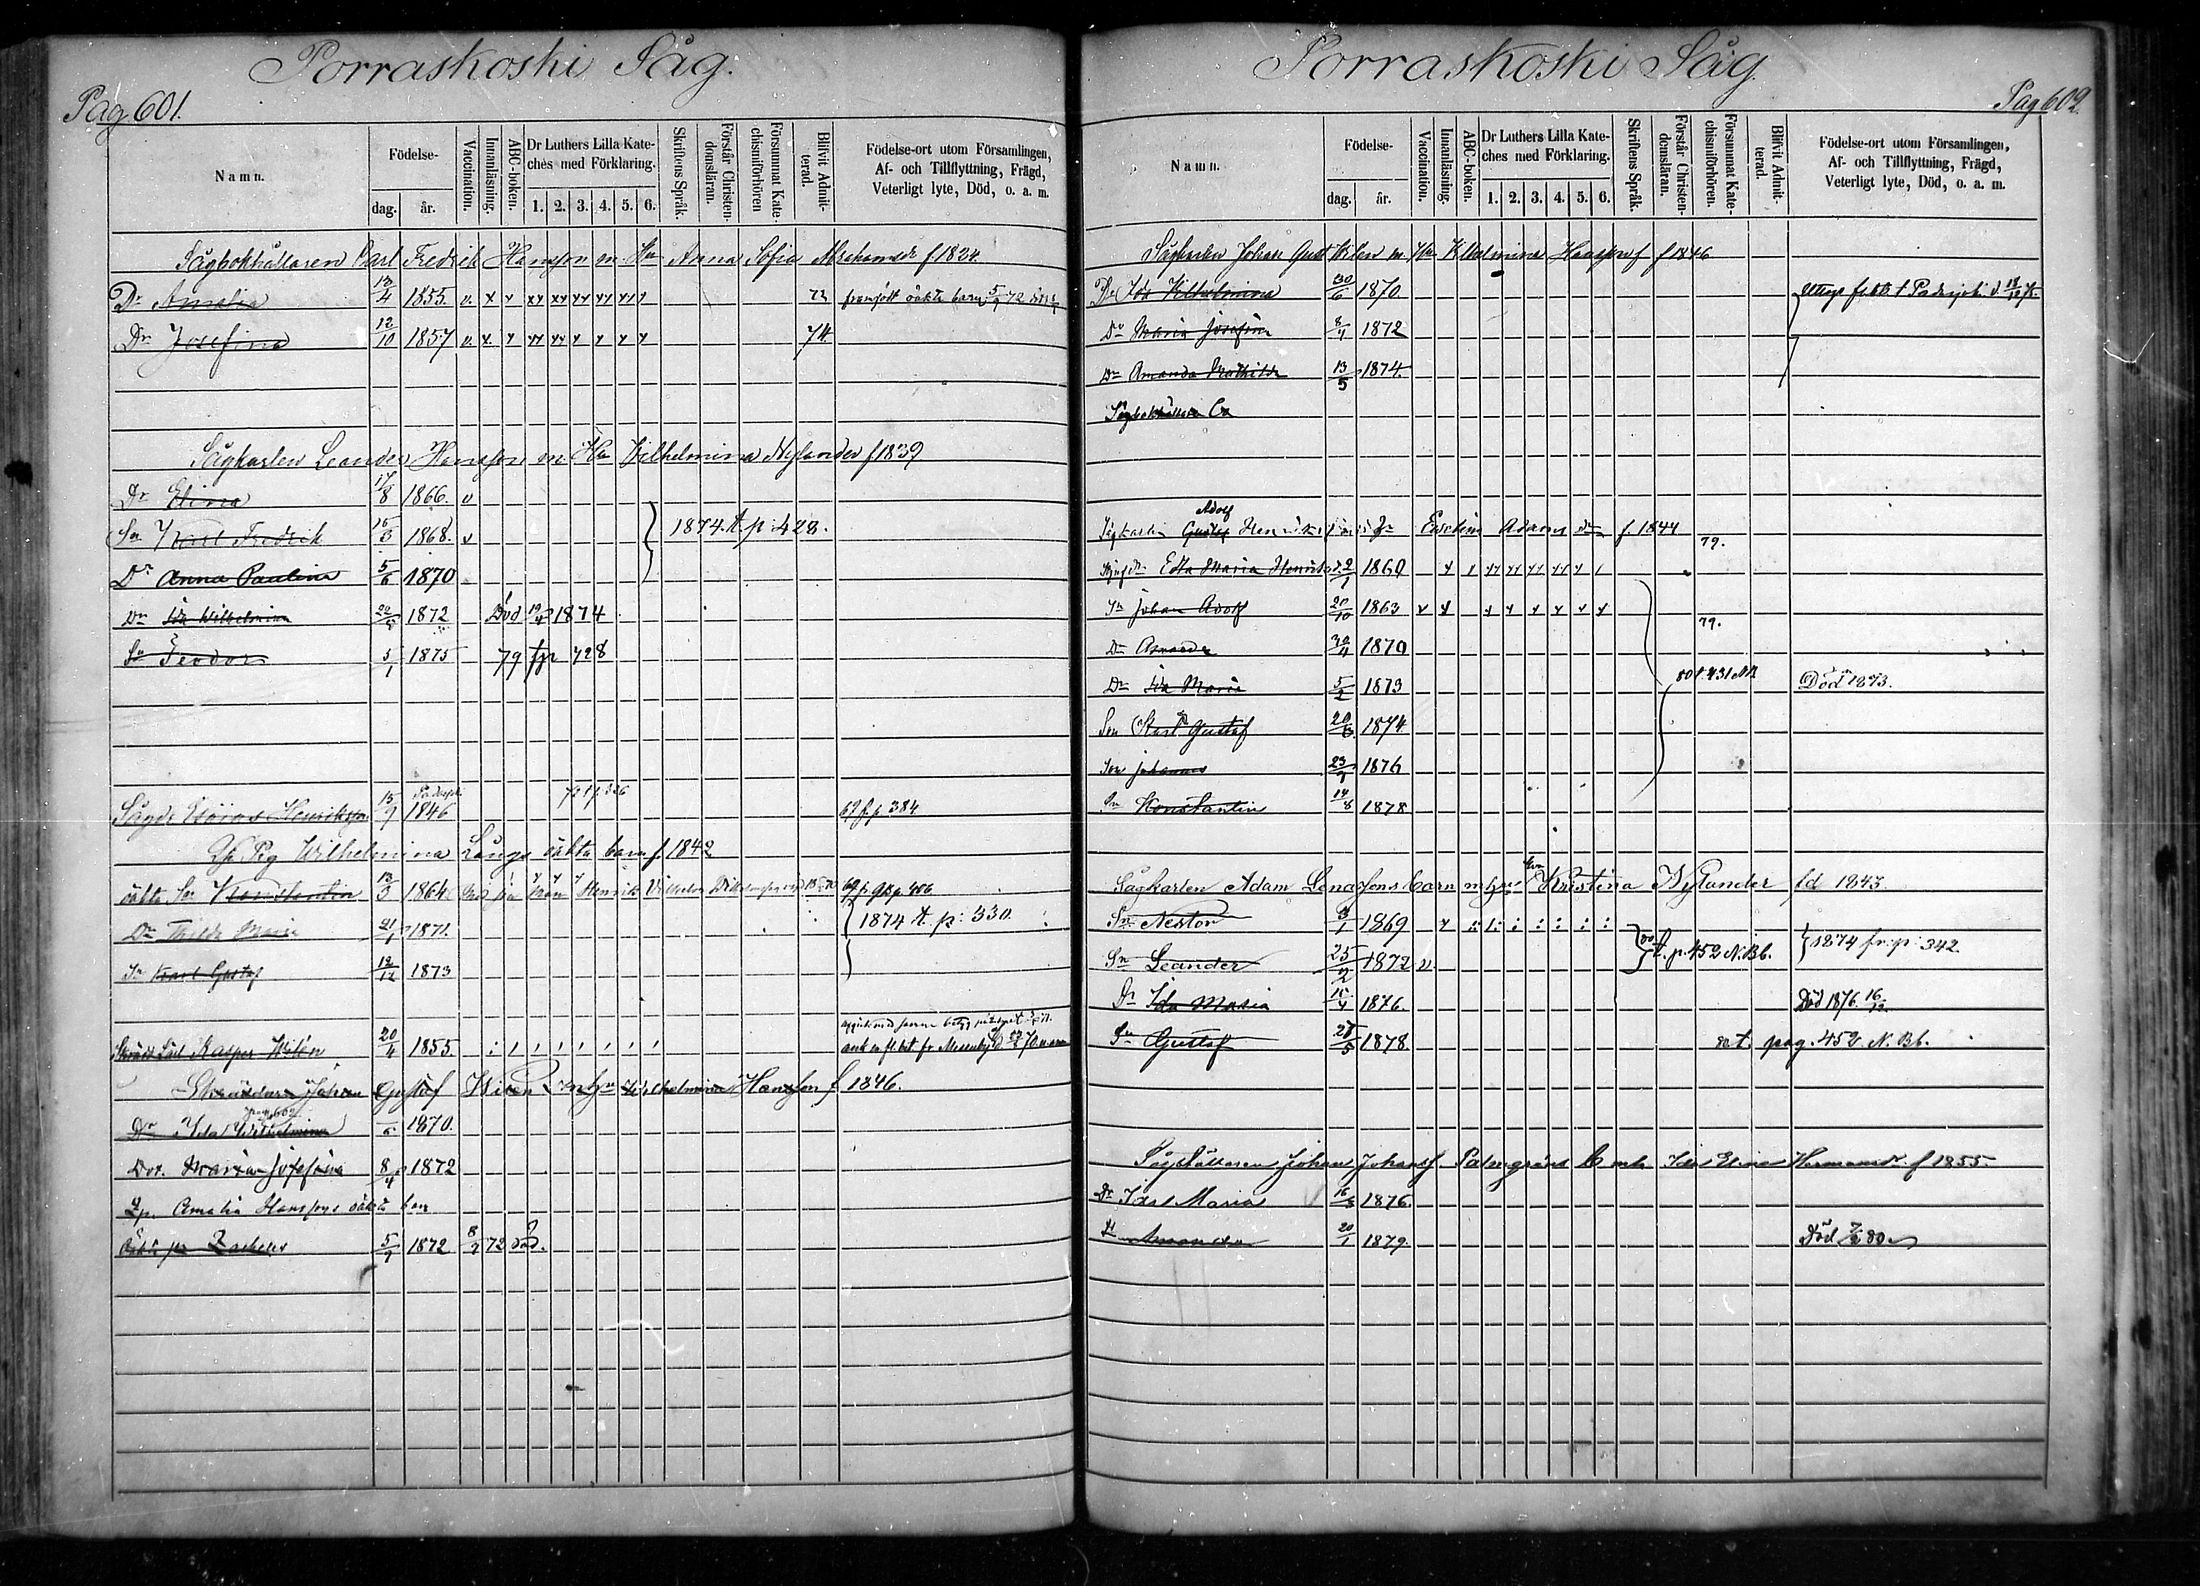 Porraskoski Såg.
Pag 601.
Namn.
Födelse-
dag. år.
Vaccination.
Innanläsning.
ABC-boken.
Dr Luthers Lilla Kate-
ches med Förklaring.
1. 2. 3. 4. 5. 6.
Skriftens Språk.
Förstår Christen-
domsläran.
Försummat Kate-
chismiförhören
Blifvit Admit-
terad.
Födelse-ort utom Församlingen,
Af- och Tillflyttning, Frägd,
Veterligt lyte, Död, o. a. m.
Sågbokhållaren Carl Fredrik Hansson m Hu Anna Sofia Abrahamsdr f 1824.
Dr Amalia 13/4 1855. v. x v xx xx xx xx xx x 72 framfödt oäkta barn 5/7 72
Dr Josefina 12/10 1857 v. x x xx xx x x x x 74.
Sågkarlen Leander Hansson m Hu Vilhelmina Nylander f 1839
Dr Elina 17/8 1866. v
Sn Karl Fredrik 15/3 1868. v 1874. t. p. 428.
Dr Anna Paulina 5/6 1870
Dr Ida Wilhelmina 22/8 1872 Död 19/4 1874
Sn Feodor 5/1 1875 79 fp 728
Henriksson 15/9 1846 69 fr. p 384
Pig Wilhelmina Långs oäkta barn f. 1842
oäkta Sn Konstantin 13/3 1864 Henrik
Dr Maria 21/1 1871. 1874 tt p: 330.
Sn Karl Gustaf 12/12 1873
Kasper Wilén 20/4 1855.
Skräddaren Johan Gustaf Wilén m hu Wilhelmina Hansson f 1846.
pag 602
Dr Ida Wilhelmina /6 1870.
Dor. Maria Josefina 8/4 1872
Amalia Hanssons oäkta barn
Zacheus 5/7 1872 8/7 72 död.
Porraskoski Såg
Pag 602.
Namn.
Födelse-
dag. år.
Vaccination.
Innanläsning.
ABC-boken.
Dr Luthers Lilla Kate-
ches med Förklaring.
1. 2. 3. 4. 5. 6.
Skriftens Språk.
Förstår Christen-
domsläran.
Försummat Kate-
chismiförhören.
Blifvit Admit-
terad.
Födelse-ort utom Församlingen,
Af- och Tillflyttning, Frägd,
Veterligt lyte, Död, o. a. m.
Sågkarlen Johan Gust Wilén m. Hu Vilhelmina Hansson f 1846
Dr Ida Vilhelmina 30/6 1870.
Dr Maria Josefina 8/4 1872
Dr Amanda Mathilda 13/5 1874.
Sågbokhållaren Ca
Adolf
Sågkarlen Gustaf Adams dr f. 1844
79.
Edla Maria 1860 x 1 xx xx xx xx x 1
Sn Johan Adolf 20/10 1863 x x x x x x x x
79.
Dr Amanda 1870
Dr Ida Maria 5/2 1873 80 t. 431 NB Död 1873.
Son Karl Gustaf 20/8 1874
Son Johannes 23/9 1876
Sn Konstantin 14/8 1878
Sågkarlen Adam Lenassons barn m hu Kristina Nylander fd 1843.
Sn Nestor 1869
Sn Leander 25/2 1872 v. t. p. 452 N. Bb. 1874 fr. p: 342
Dr Ida Maria 15/4 1876. Död 1876 16/12
Sn Gustaf 28/5 1878 t. pag. 452. N. Bb.
Sågställaren Johan Johanss Palmgrens Ida Elina Hermansdr f 1855.
Dr Ida Maria 16/3 1876
Dr Amanda 20/1 1879 Död 7/2 80